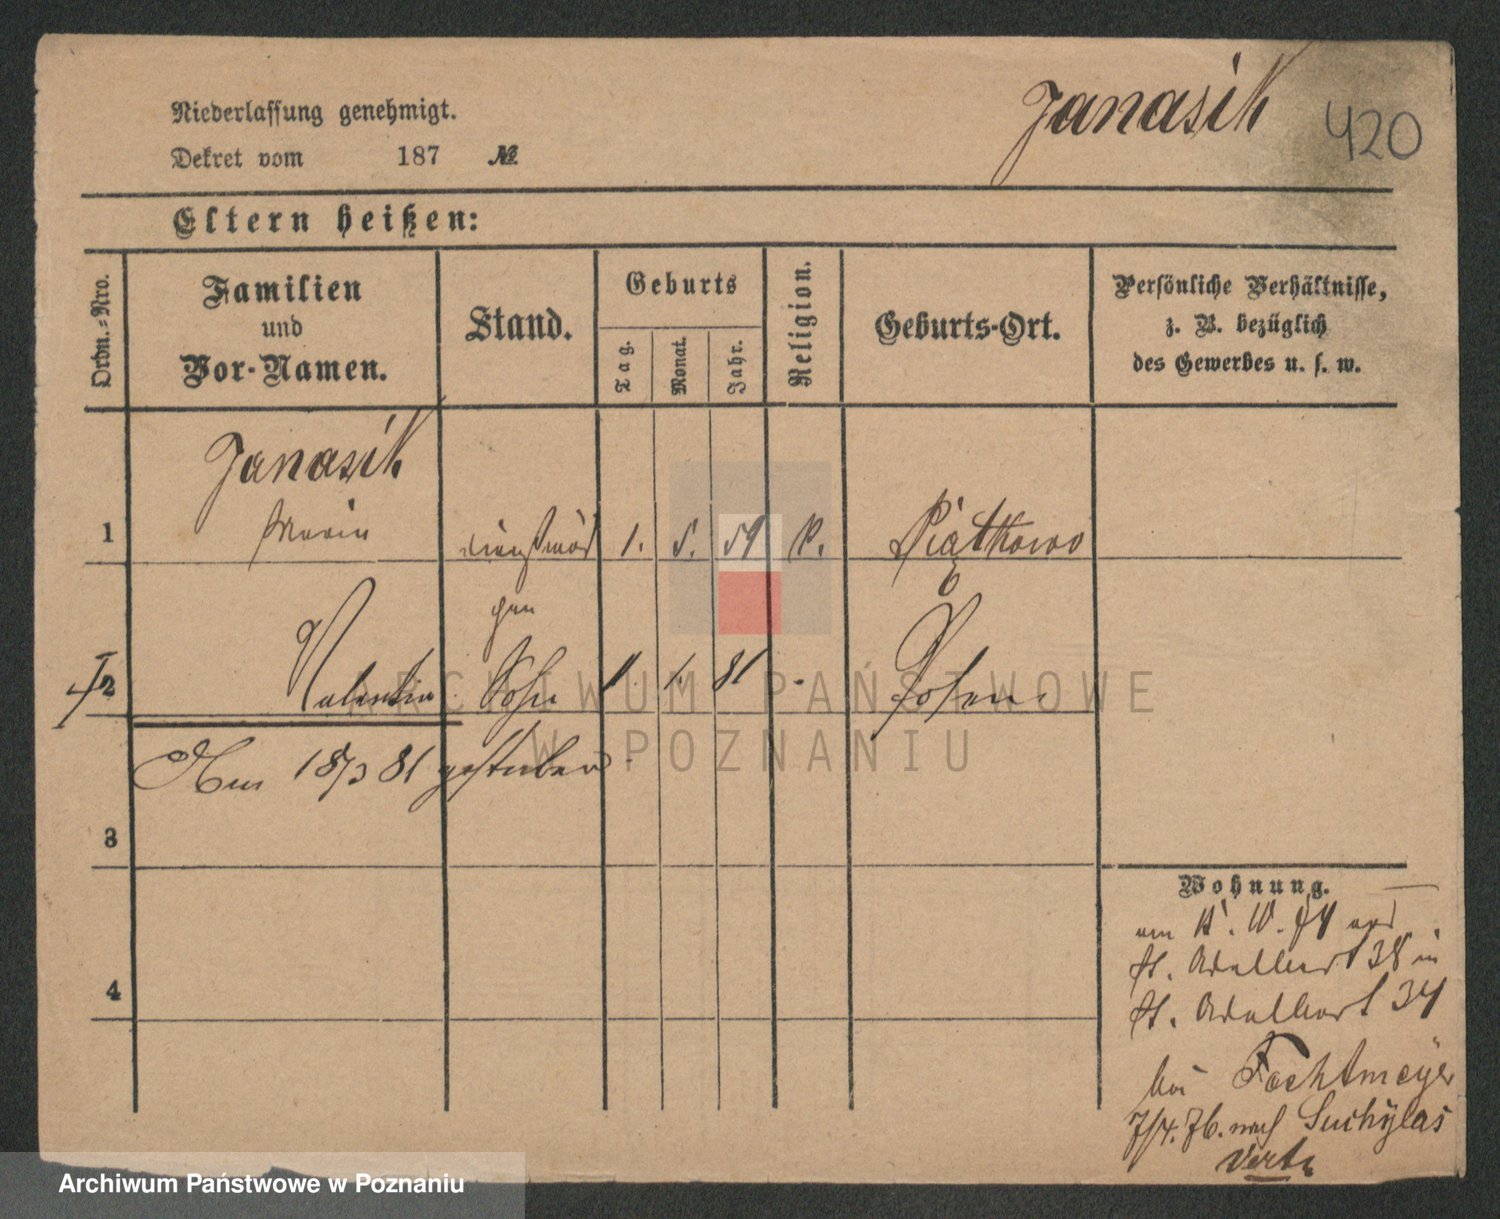 Janasik 420
Niederlassung genehmigt.
Dekret vom 187 №
Eltern heißen:
Ordn.-Nro.
Familien
und
Vor-Namen.
Stand.
Geburts
Tag.
Monat.
Jahr.
Religion.
Geburts-Ort.
Persönliche Verhältnisse,
z. B. bezüglich
des Gewerbes u. s. w.
Janasik
1 Maria dienstmäd 1. 5. 59 K. Piątkowo
chen
2 Valentin Sohn 1. 81 - Posen
Am 18/3 81 gestorben
3
4
Wohnung.
am
St. Adalbert 38 in
St. Adalbert 34
bei Fochtmeyer
7/4. 76. nach Suchylas
Verte
ARCHIWUM PAŃSTWOWE
W POZNANIU
Archiwum Państwowe w Poznaniu